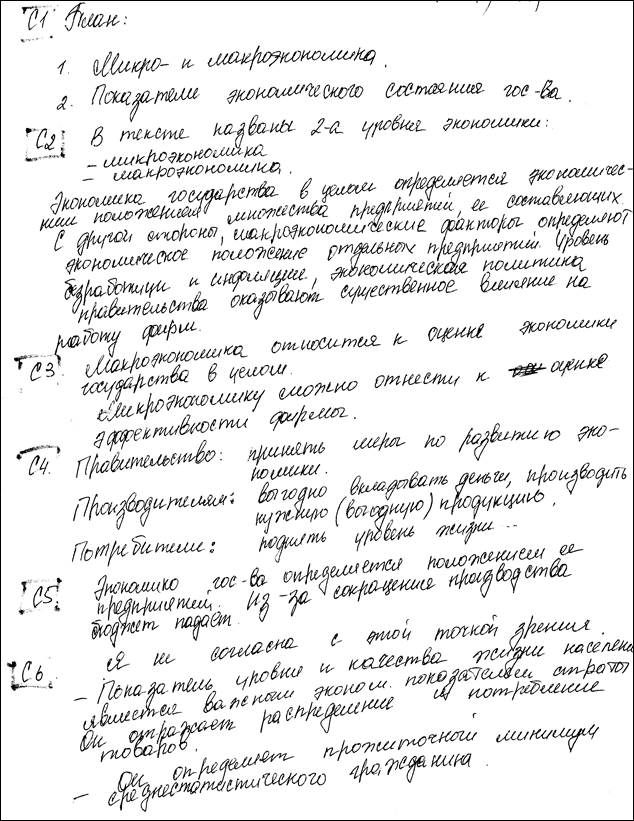 С1 План:
1. Микро- и макроэкономика.
2. Показатели экономического состояния гос-ва.
С2 В тексте названы 2-а уровня экономики:
– микроэкономика
– макроэкономика.
Экономика государства в целом определяется экономичес-
ким положением множества предприятий, ее составляющих.
С другой стороны, макроэкономические факторы определяют
экономическое положение отдельных предприятий. Уровень
безработицы и инфляции, экономическая политика
правительства оказывают существенное влияние на
работу фирм.
С3 Макроэкономика относится к оценке экономики
государства в целом.
Микроэкономику можно отнести к оценке
эффективности фирмы.
С4. Правительство: принять меры по развитию эко-
номики.
Производителям: выгодно вкладывать деньги, производить
нужную (выгодную) продукцию.
Потребители: поднять уровень жизни...
С5. Экономико гос-ва определяется положением ее
предприятий. Из-за сокращения производства
бюджет падает.
С6 Я не согласна с этой точкой зрения.
– Показатель уровня и качества жизни населени
является важным эконом. показателем страты
Он отражает распределение и потребление
товаров.
– Он определяет прожиточный минимум
среднестатистического гражданина.